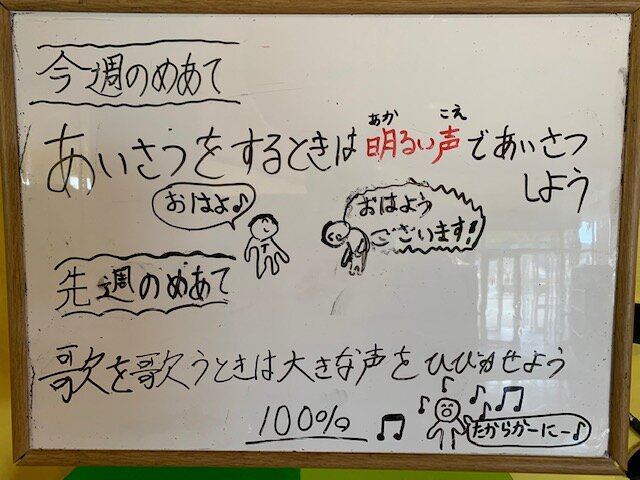 今週のめあて
あいさつをするときは明るい声であいさつ
あか こえ
しよう
おはよ♪
おはよう
ございます!
先週のめあて
歌を歌うときは大きな声をひびかせよう
100%
たからかーにー♪